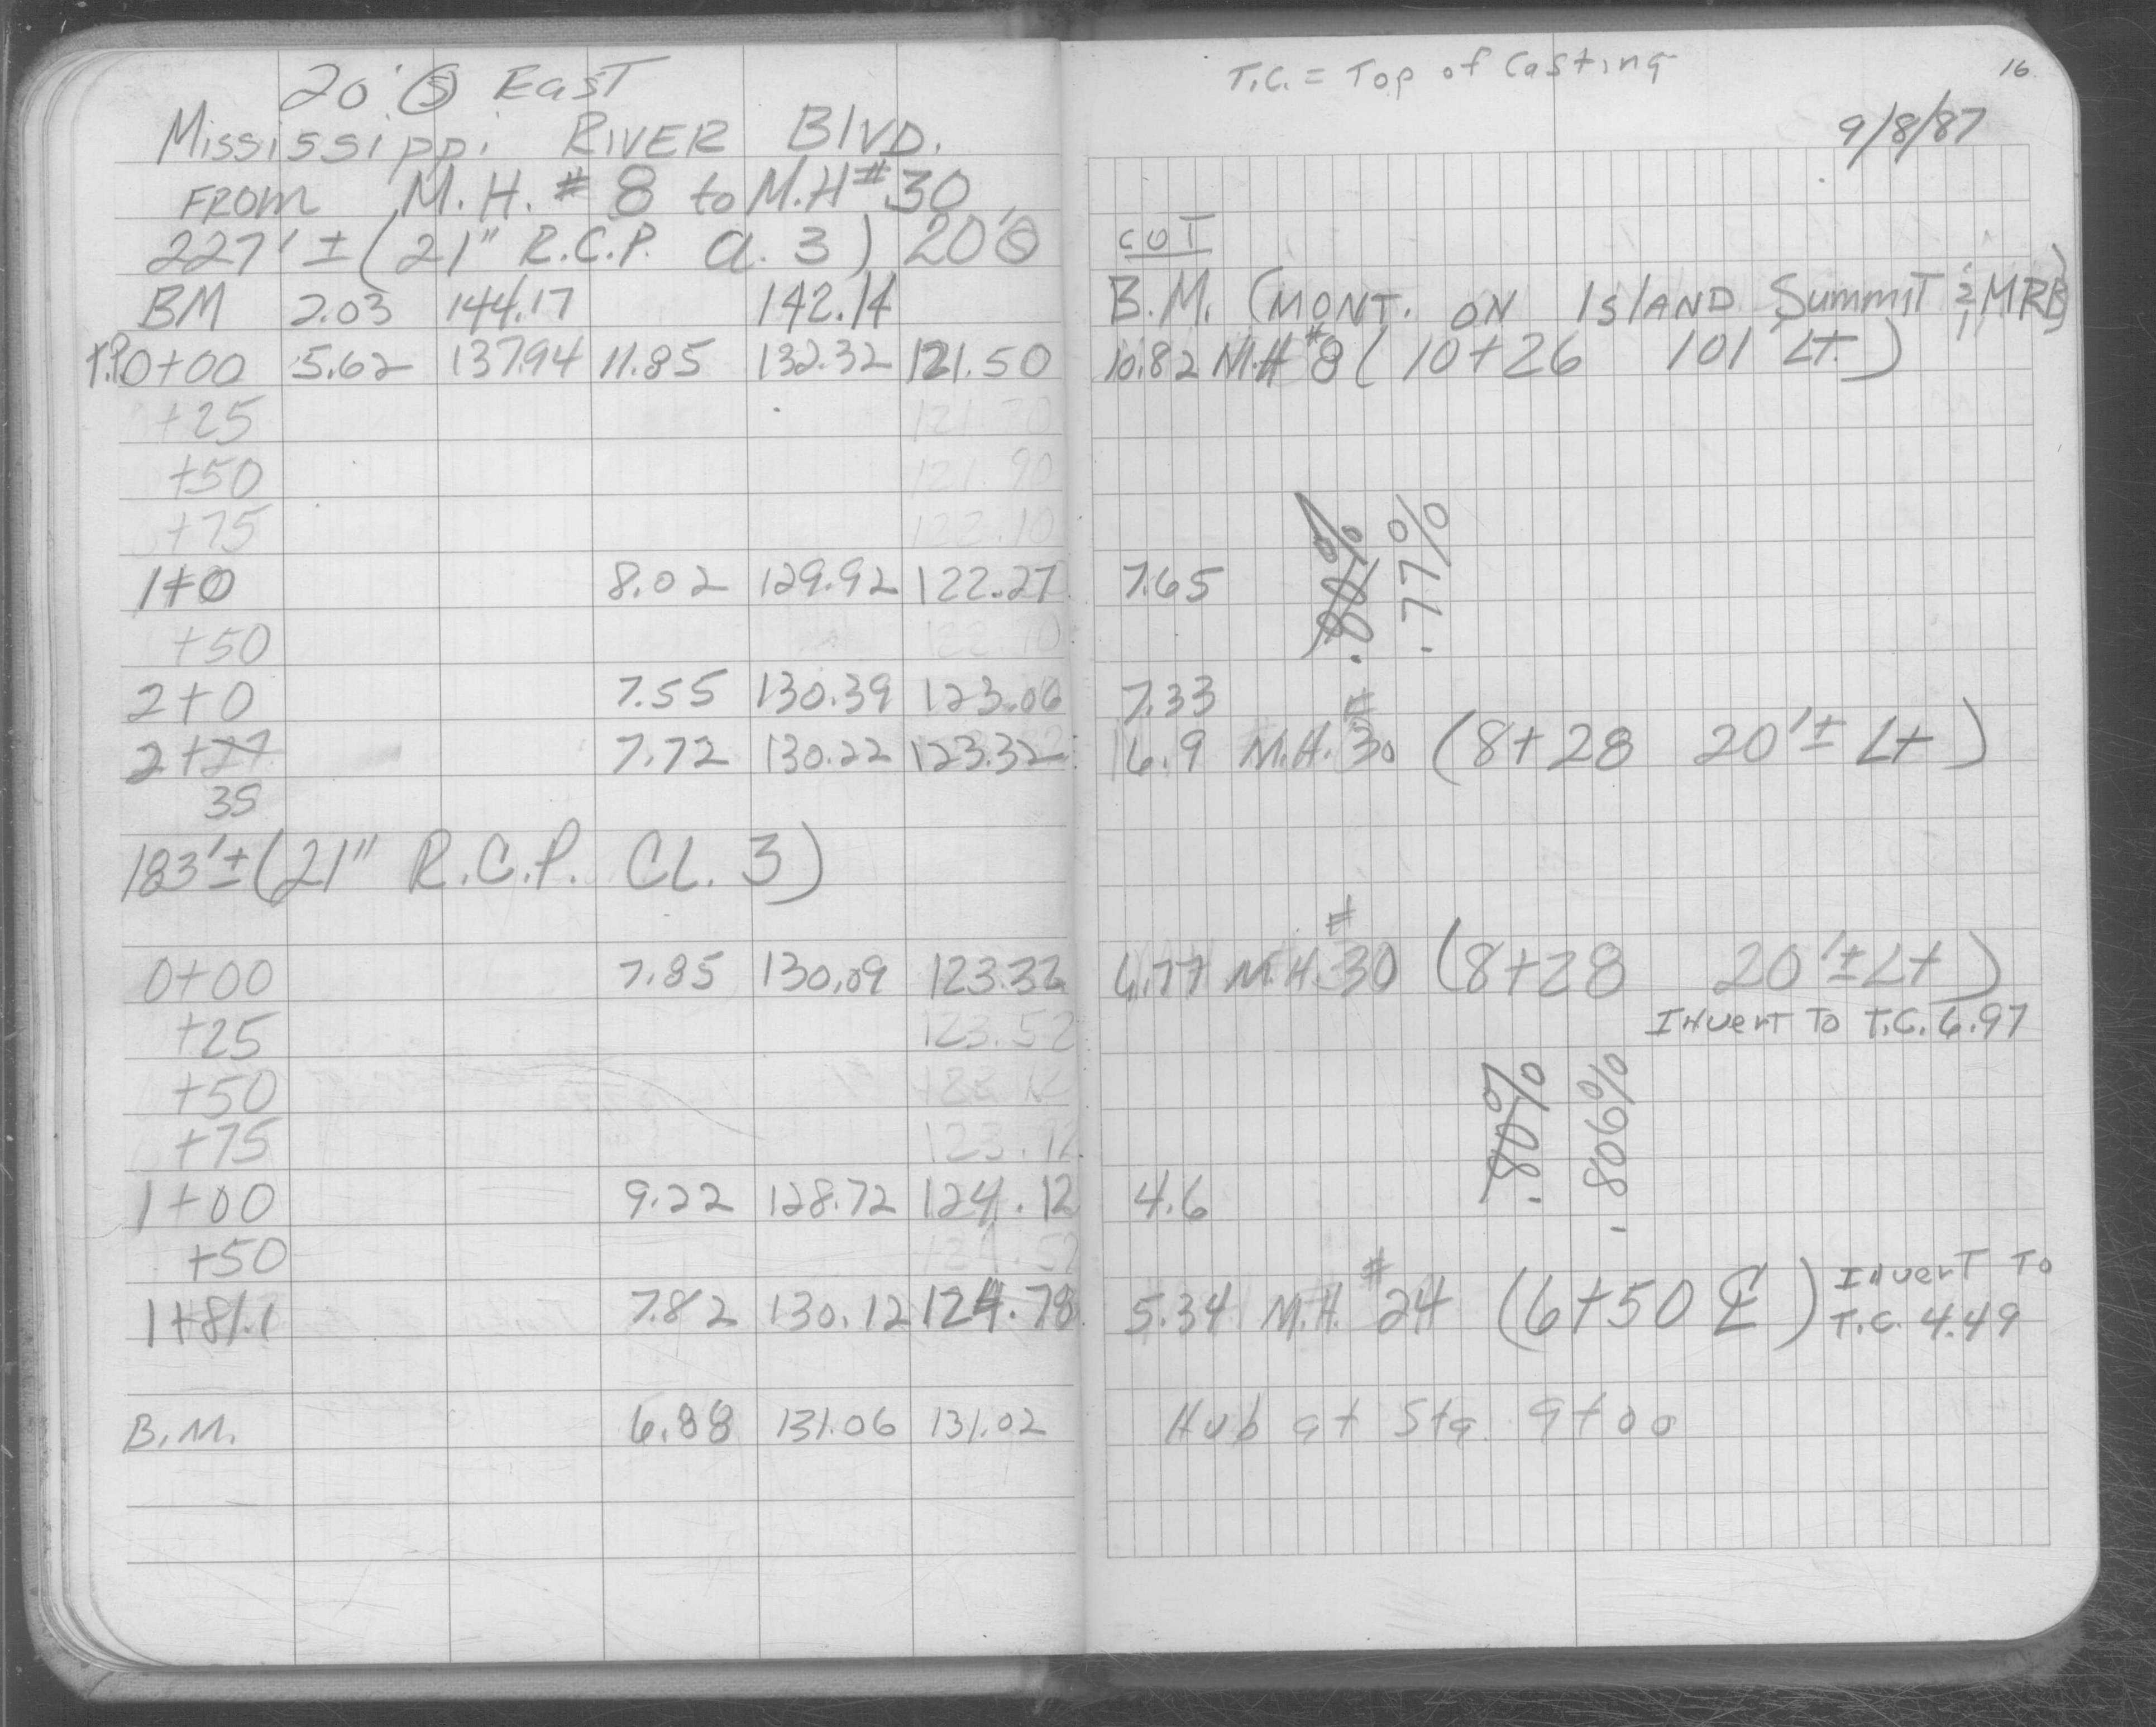 20' Ⓢ East
Mississippi RIVER Blvd.
FROM M.H. #8 to M.H #30
227' ± (21" R.C.P. Cl. 3) 20' Ⓢ
BM 2.03 144.17 142.14
T.P. 0+00 5.62 137.94 11.85 132.32 121.50
+25 121.70
+50 121.90
+75 122.10
1+0 8.02 129.92 122.27
+50 122.70
2+0 7.55 130.39 123.06
2+27 7.72 130.22 123.32
35
183'± (21" R.C.P. CL. 3)
0+00 7.85 130.09 123.32
+25 123.52
+50
+75 123.92
1+00 9.22 128.72 124.12
+50 124.52
1+81.1 7.82 130.12 124.78
B.M. 6.88 131.06 131.02
T.C. = Top of Casting
16
9/8/87
CUT
B.M. (MONT. ON ISLAND Summit & MRB)
10.82 M.H #8 (10+26 101' Lt.)
.80%
.77%
7.65
7.33
6.9 M.H. #30 (8+28 20'± Lt)
6.77 M.H. #30 (8+28 20'± Lt)
Invert To T.C. 6.97
.80%
.806%
4.6
5.34 M.H. #24 (6+50 ℄) Invert To
T.C. 4.49
Hub at Sta. 9+00